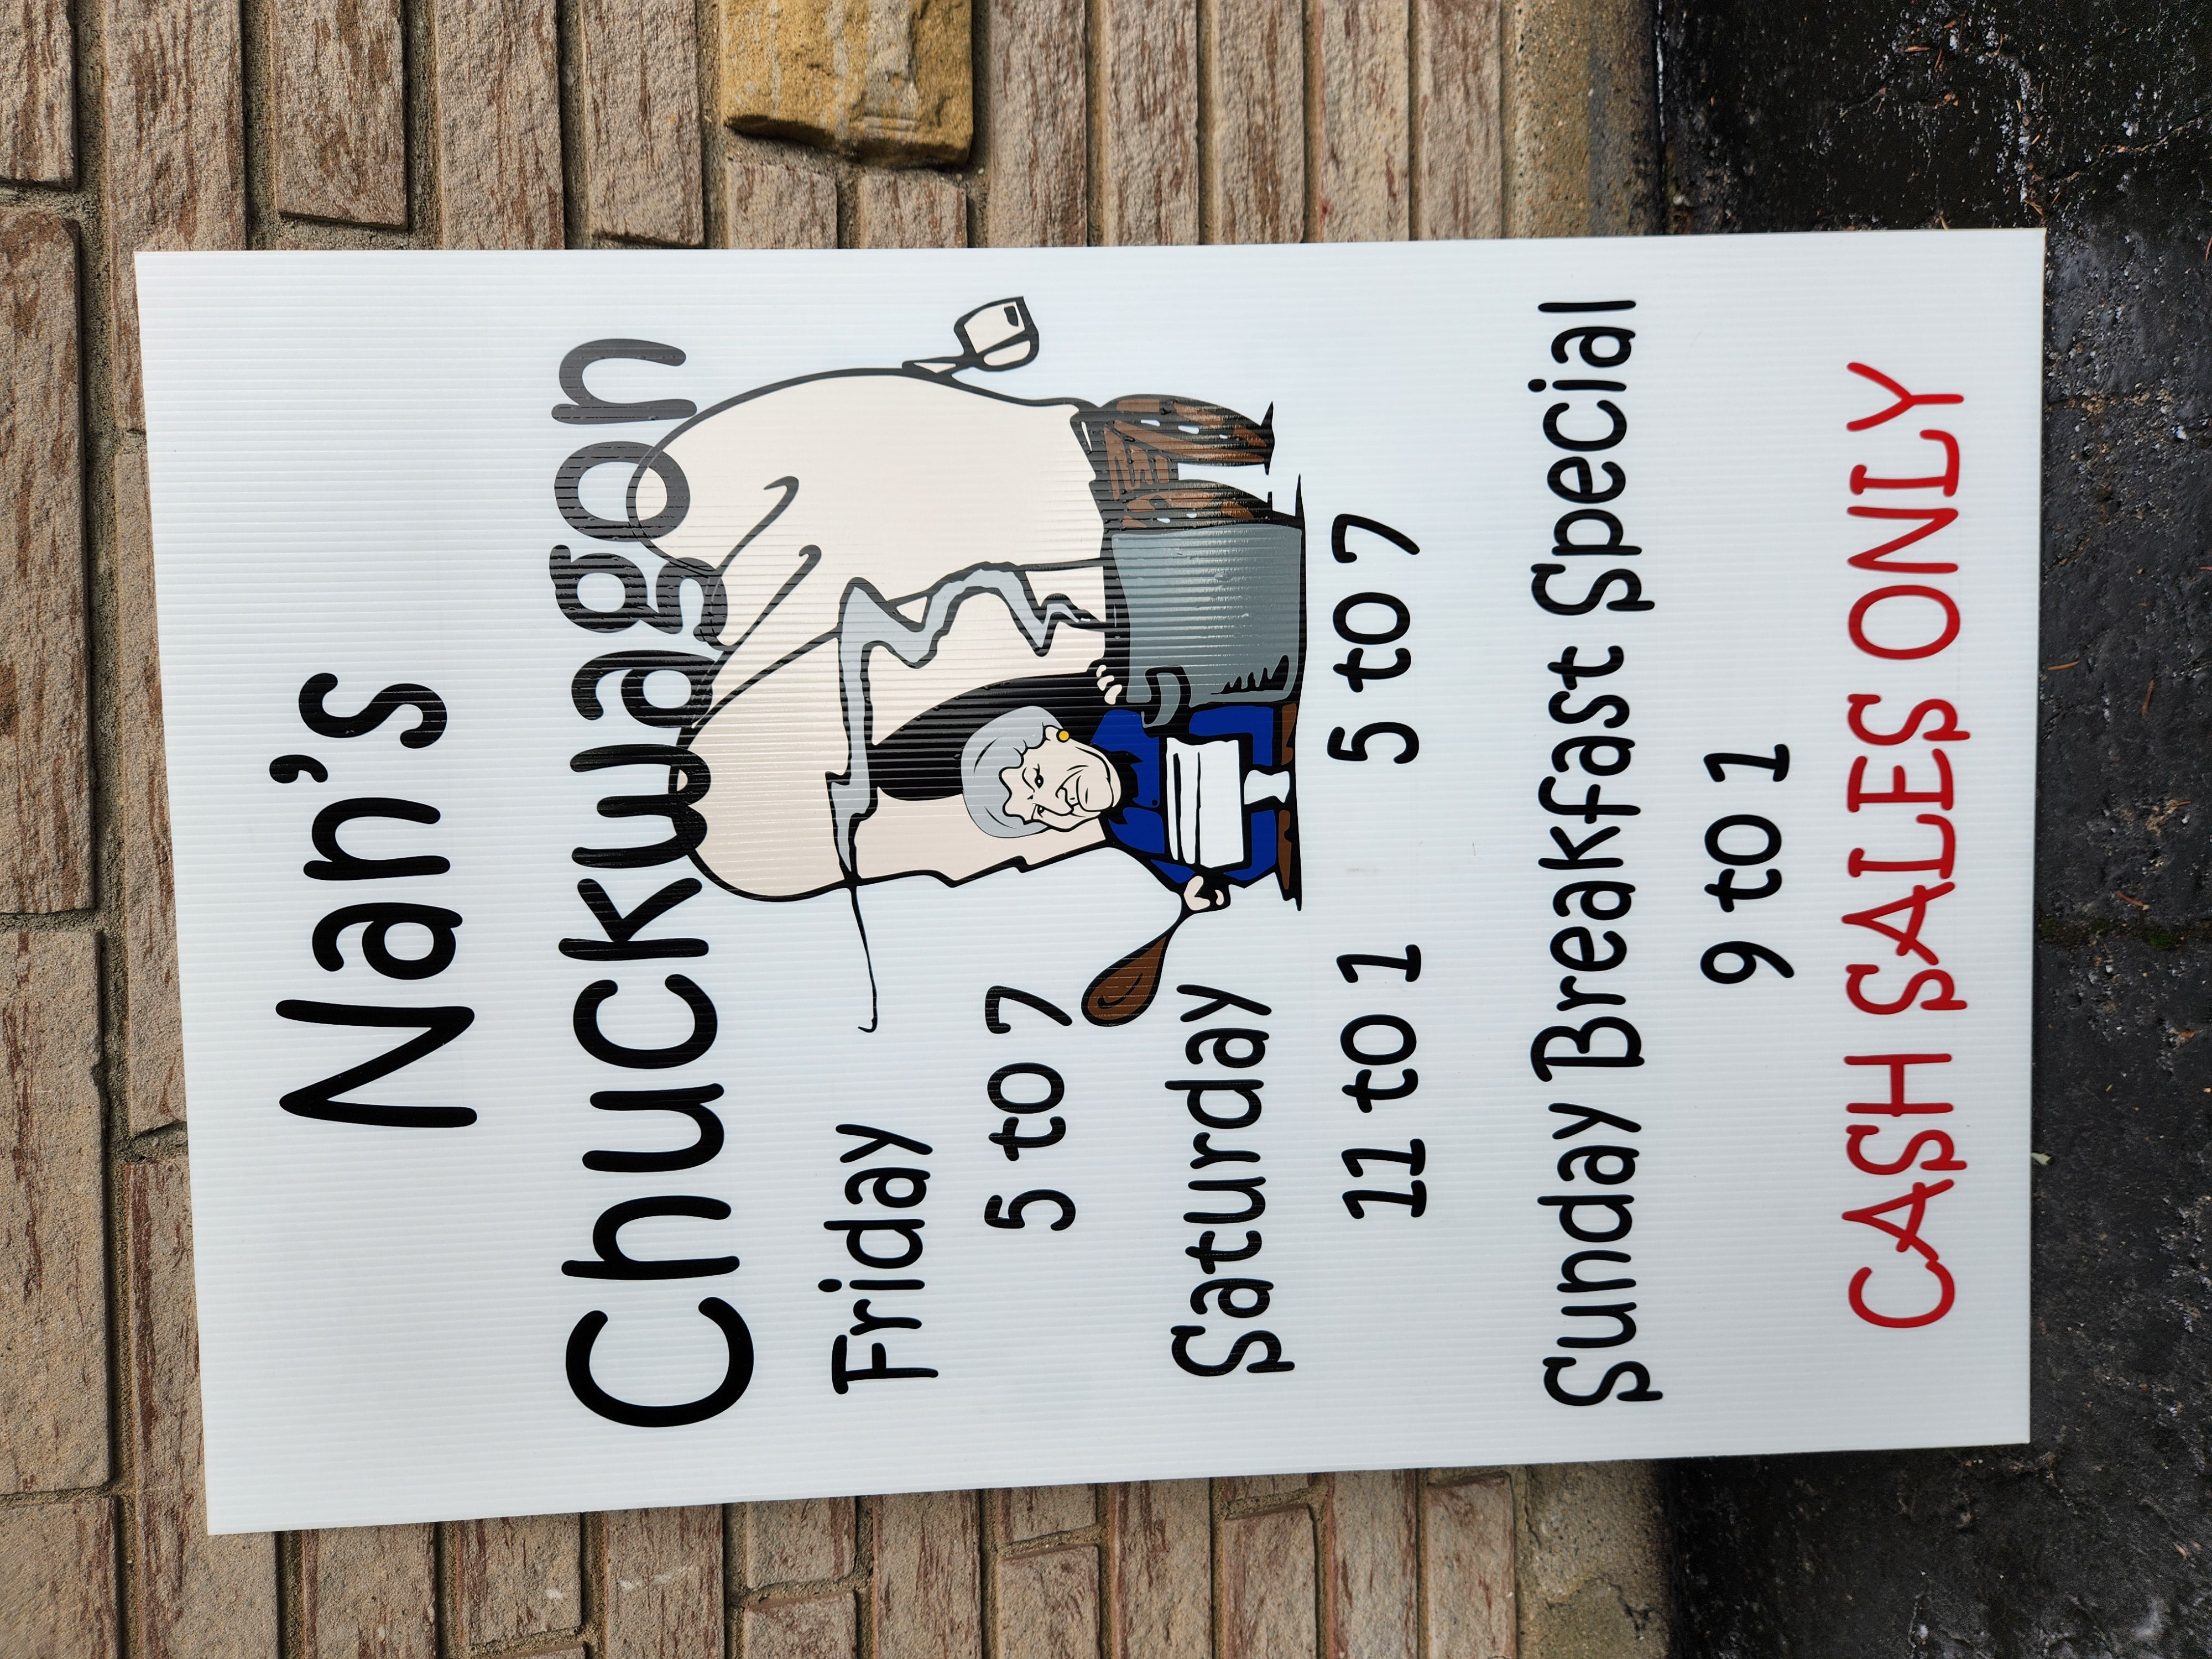 Nan's
Chuckwagon
Friday
5 to 7
Saturday
11 to 1 5 to 7
Sunday Breakfast Special
9 to 1
CASH SALES ONLY